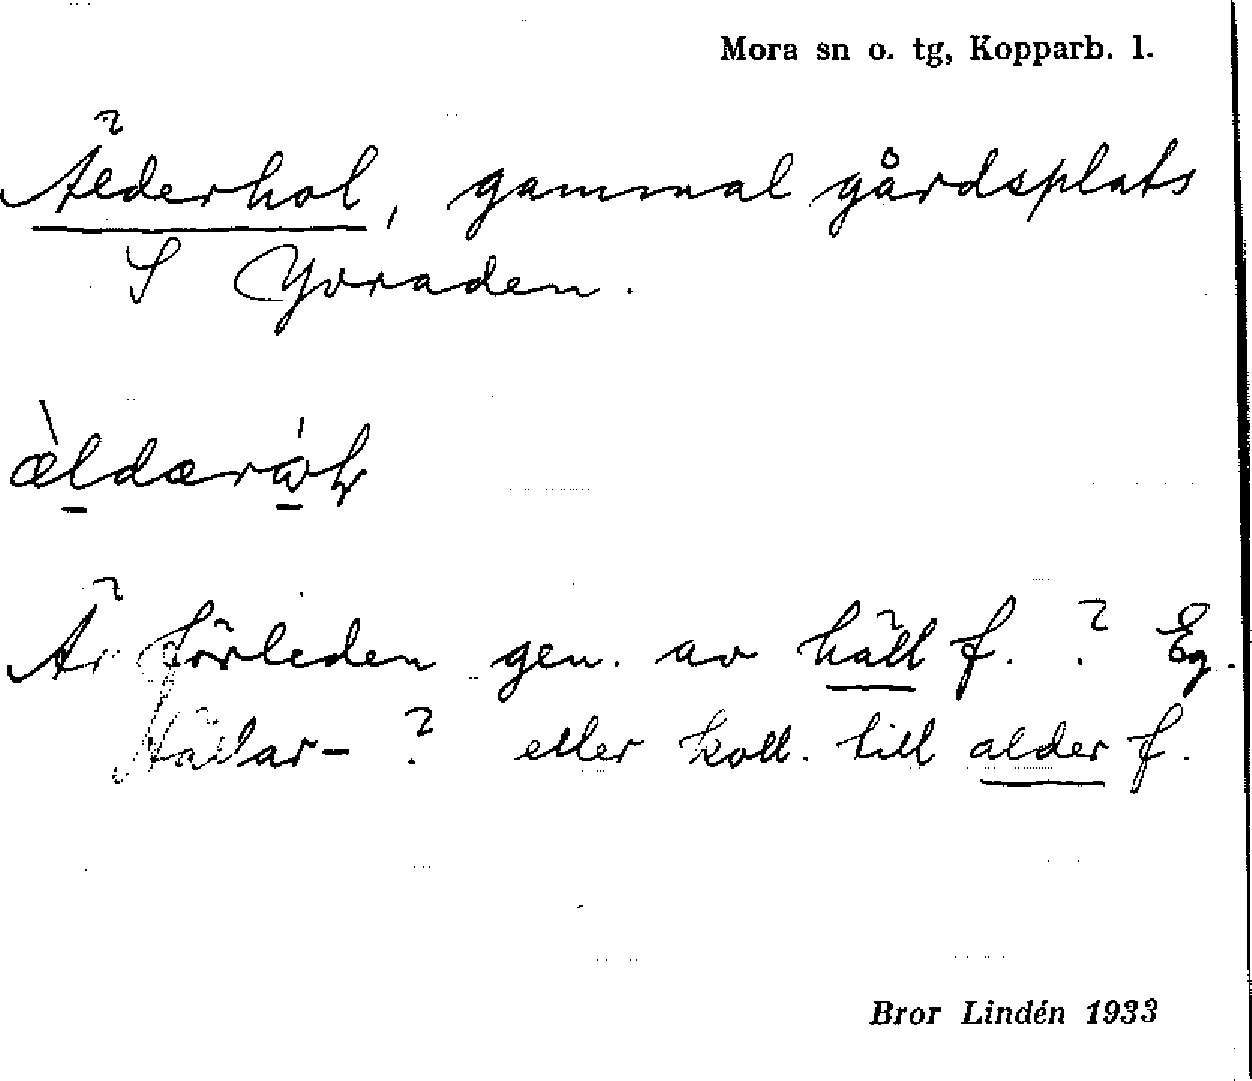 Mora sn o. tg, Kopparb. l.
Älderhol, gammal gårdsplats
S Yvraden.
Är förleden gen. av häll f. ? Eg.
Hällar- ? eller koll. till alder f.
Bror Lindén 1933